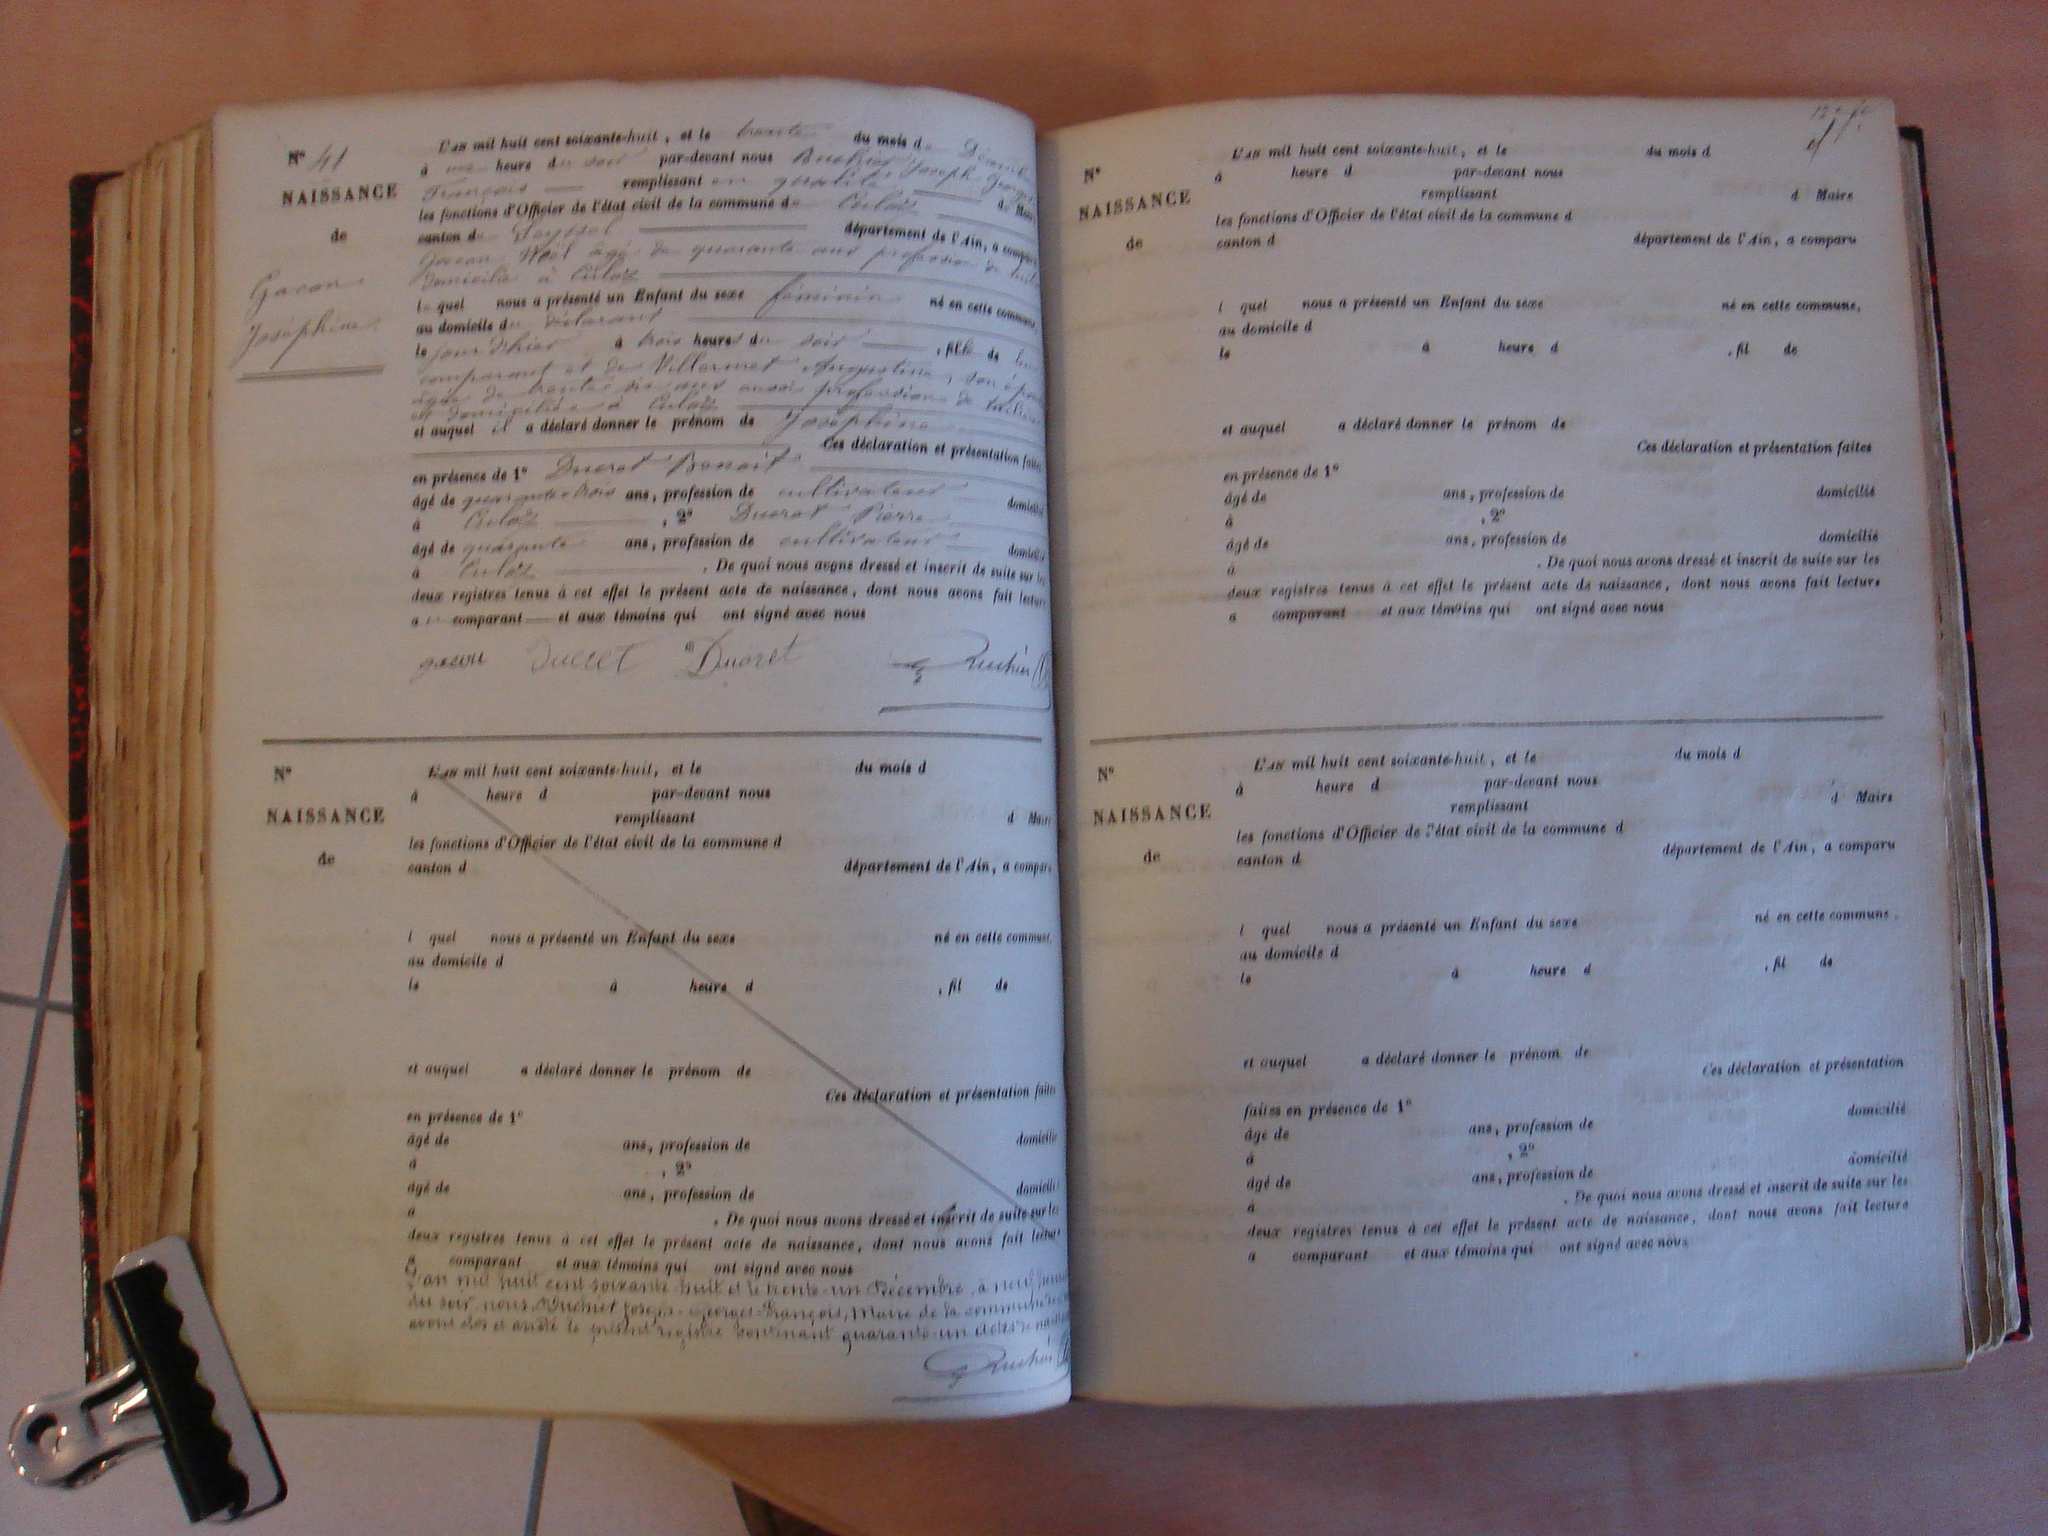 N° 41
NAISSANCE
de
Gacon
Joséphine
L'AN mil huit cent soixante-huit, et le trente du mois de Décembre
à une heure du soir par-devant nous Ruchier Joseph Georges
François remplissant en qualité de Maire
les fonctions d'Officier de l'état civil de la commune de Culoz
canton de Seyssel département de l'Ain, a comparu
Gacon Noël âgé de quarante ans profession de
domicilié à Culoz
le quel nous a présenté un Enfant du sexe féminin né en cette commune,
au domicile du déclarant
le jour d'hier à trois heures du soir, fille de lui
comparant et de Villermet Augustine, son épouse
âgée de trente six ans aussi profession de
et domiciliée à Culoz
et auquel il a déclaré donner le prénom de Joséphine
Ces déclaration et présentation faites
en présence de 1° Ducret Benoit
âgé de quarante trois ans, profession de cultivateur domicilié
à Culoz, 2° Ducret Pierre
âgé de quarante ans, profession de cultivateur domicilié
à Culoz. De quoi nous avons dressé et inscrit de suite sur les
deux registres tenus à cet effet le présent acte de naissance, dont nous avons fait lecture
au comparant et aux témoins qui ont signé avec nous
gacon Ducret Ducret Ruchier
N°
NAISSANCE
de
L'AN mil huit cent soixante-huit, et le du mois d
à heure d par-devant nous
remplissant d Maire
les fonctions d'Officier de l'état civil de la commune d
canton d département de l'Ain, a comparu
l quel nous a présenté un Enfant du sexe né en cette commune,
au domicile d
le à heure d, fil de
et auquel a déclaré donner le prénom de
Ces déclaration et présentation faites
en présence de 1°
âgé de ans, profession de domicilié
à, 2°
âgé de ans, profession de domicilié
à. De quoi nous avons dressé et inscrit de suite sur les
deux registres tenus à cet effet le présent acte de naissance, dont nous avons fait lecture
a comparant et aux témoins qui ont signé avec nous
L'an mil huit cent soixante huit et le trente-un Décembre, à neuf heures
du soir, nous, Ruchier Joseph-Georges-François, Maire de la commune de
avons clos et arrêté le présent registre contenant quarante-un actes de naissance
Ruchier
N°
NAISSANCE
de
L'AN mil huit cent soixante-huit, et le du mois d
à heure d par-devant nous
remplissant d Maire
les fonctions d'Officier de l'état civil de la commune d
canton d département de l'Ain, a comparu
l quel nous a présenté un Enfant du sexe né en cette commune,
au domicile d
le à heure d, fil de
et auquel a déclaré donner le prénom de
Ces déclaration et présentation faites
en présence de 1°
âgé de ans, profession de domicilié
à, 2°
âgé de ans, profession de domicilié
à. De quoi nous avons dressé et inscrit de suite sur les
deux registres tenus à cet effet le présent acte de naissance, dont nous avons fait lecture
a comparant et aux témoins qui ont signé avec nous
N°
NAISSANCE
de
L'AN mil huit cent soixante-huit, et le du mois d
à heure d par-devant nous
remplissant d Maire
les fonctions d'Officier de l'état civil de la commune d
canton d département de l'Ain, a comparu
l quel nous a présenté un Enfant du sexe né en cette commune,
au domicile d
le à heure d, fil de
et auquel a déclaré donner le prénom de
Ces déclaration et présentation
faites en présence de 1° domicilié
âgé de ans, profession de
à, 2° domicilié
âgé de ans, profession de
à. De quoi nous avons dressé et inscrit de suite sur les
deux registres tenus à cet effet le présent acte de naissance, dont nous avons fait lecture
a comparant et aux témoins qui ont signé avec nous